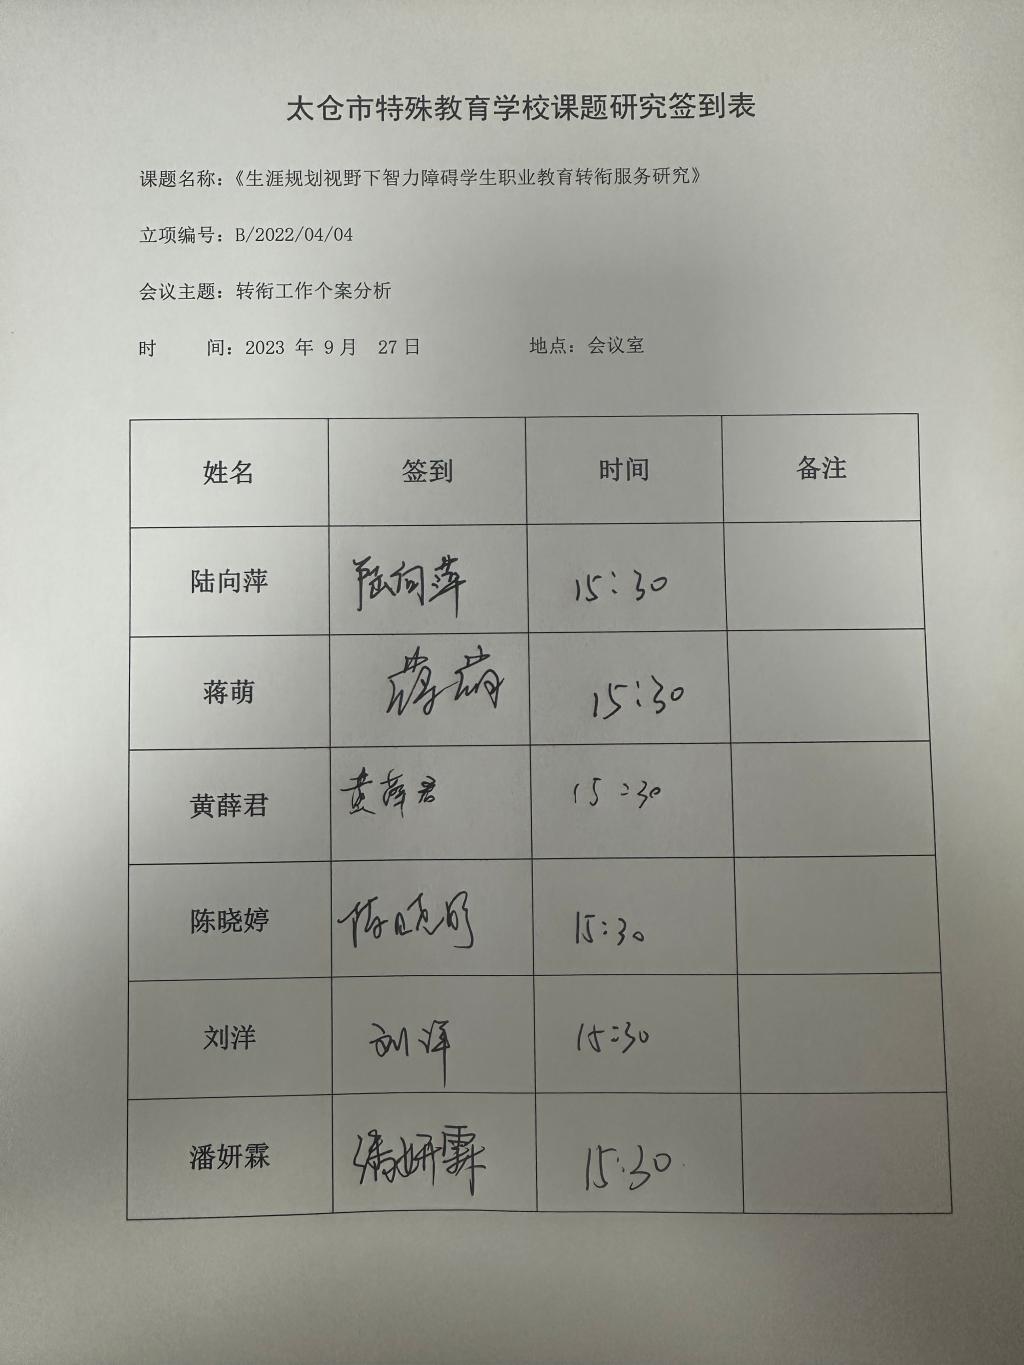 太仓市特殊教育学校课题研究签到表
课题名称：《生涯规划视野下智力障碍学生职业教育转衔服务研究》
立项编号：B/2022/04/04
会议主题：转衔工作个案分析
时 间：2023 年 9 月 27 日 地点：会议室
姓名 签到 时间 备注
陆向萍 陆向萍 15:30
蒋萌 蒋萌 15:30
黄薛君 黄薛君 15:30
陈晓婷 陈晓婷 15:30
刘洋 刘洋 15:30
潘妍霖 潘妍霖 15:30